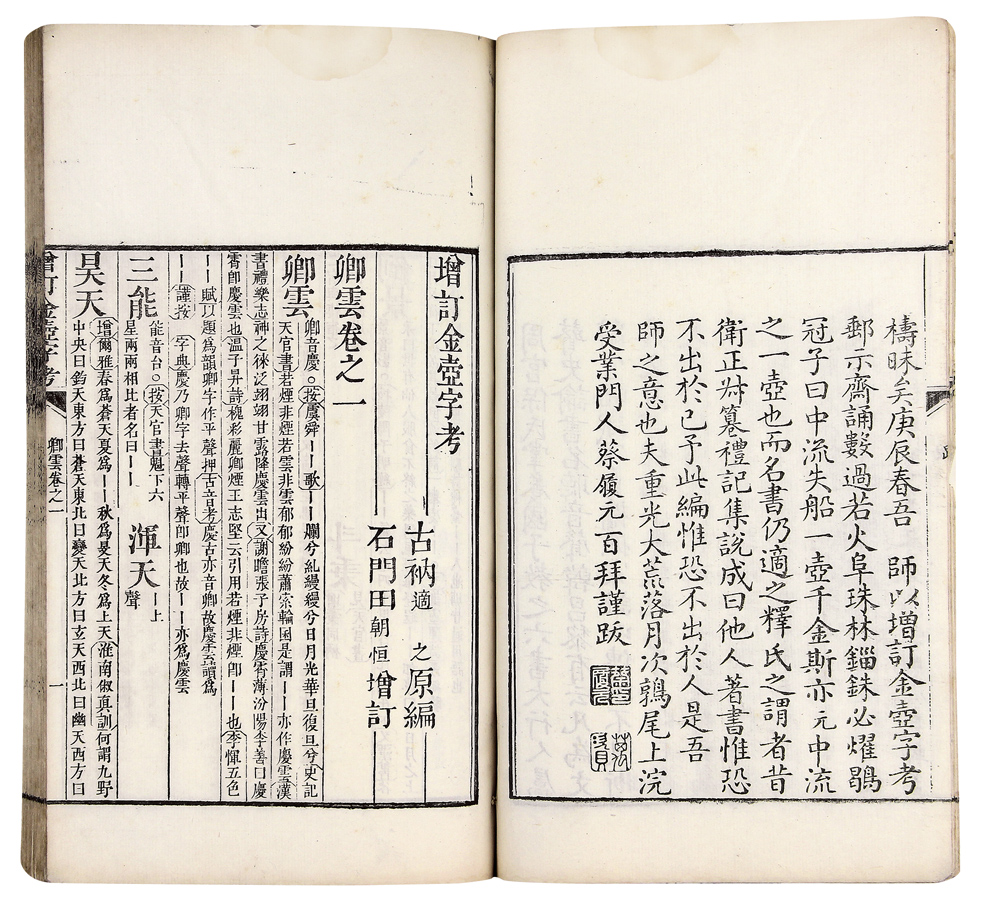 檮昧矣庚辰春吾 師以增訂金壺字考
郵示齋誦數過若火阜珠林錙銖必燿鶡
冠子曰中流失船一壺千金斯亦元中流
之一壺也而名書仍適之釋氏之謂者昔
衛正叔纂禮記集說成曰他人著書惟恐
不出於已予此編惟恐不出於人是吾
師之意也夫重光大荒落月次鶉尾上浣
受業門人蔡履元百拜謹跋
增訂金壺字考
古衲適 之原編
石門田朝恒增訂
卿雲卷之一
卿雲
卿音慶○按虞舜丨丨歌丨丨爛兮糺縵縵兮日月光華旦復旦兮史記
天官書若煙非煙若雲非雲郁郁紛紛蕭索輪囷是謂丨丨亦作慶雲漢
書禮樂志神之徠泛翊翊甘露降慶雲出又謝瞻張子房詩慶霄薄汾陽李善曰慶
霄卽慶雲也溫子昇詩槐彩麗卿煙王志堅云引用若煙非煙卽丨丨也李惲五色
丨丨賦以題爲韻卿字作平聲押古音考慶古亦音卿故慶雲讀爲
丨丨謹按 字典慶乃卿字去聲轉平聲卽卿也故丨丨亦爲慶雲
三能
能音台○按天官書魁下六
星兩兩相比者名曰丨丨
渾天
丨上
聲
昊天
增爾雅春爲蒼天夏爲丨丨秋爲旻天冬爲上天淮南俶真訓何謂九野
中央曰鈞天東方曰蒼天東北曰變天北方曰玄天西北曰幽天西方曰
增訂金壺字考
卿雲卷之一
一